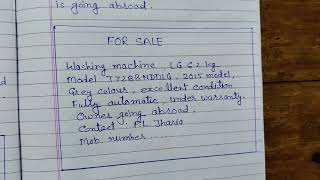 is going abroad.
FOR SALE
Washing machine, LG 6.2 kg
Model T7288NDDLG, 2015 model,
Grey colour, excellent condition
Fully automatic, under warranty.
Owner going abroad.
Contact : P.L. Tharia
Mob. number .......